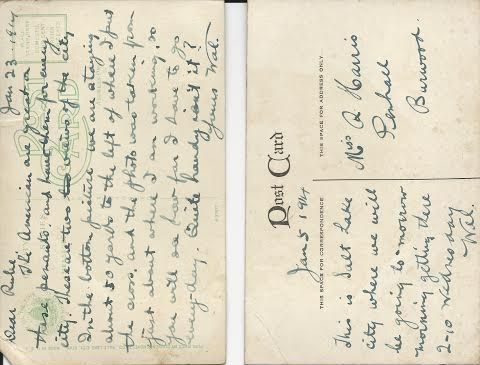 Jan 23 1914
Dear Rube,
The Americans are great on
these penants and have them for every
city. These are two views of the city
In the bottom picture we are staying
about 50 yards to the left of where I put
the cross, and the photo was taken from
just about where I am working, so
you will see how far I have to go
every-day. Quite handy isn't it?
Yours Wal.
Post Card
THIS SPACE FOR CORRESPONDENCE
THIS SPACE FOR ADDRESS ONLY
Jan 5 1914
This is Salt Lake
city where we will
be going to-morrow
morning getting there
2-10 Wednesday
Wal.
Miss R Harris
Penhall
Burwood.